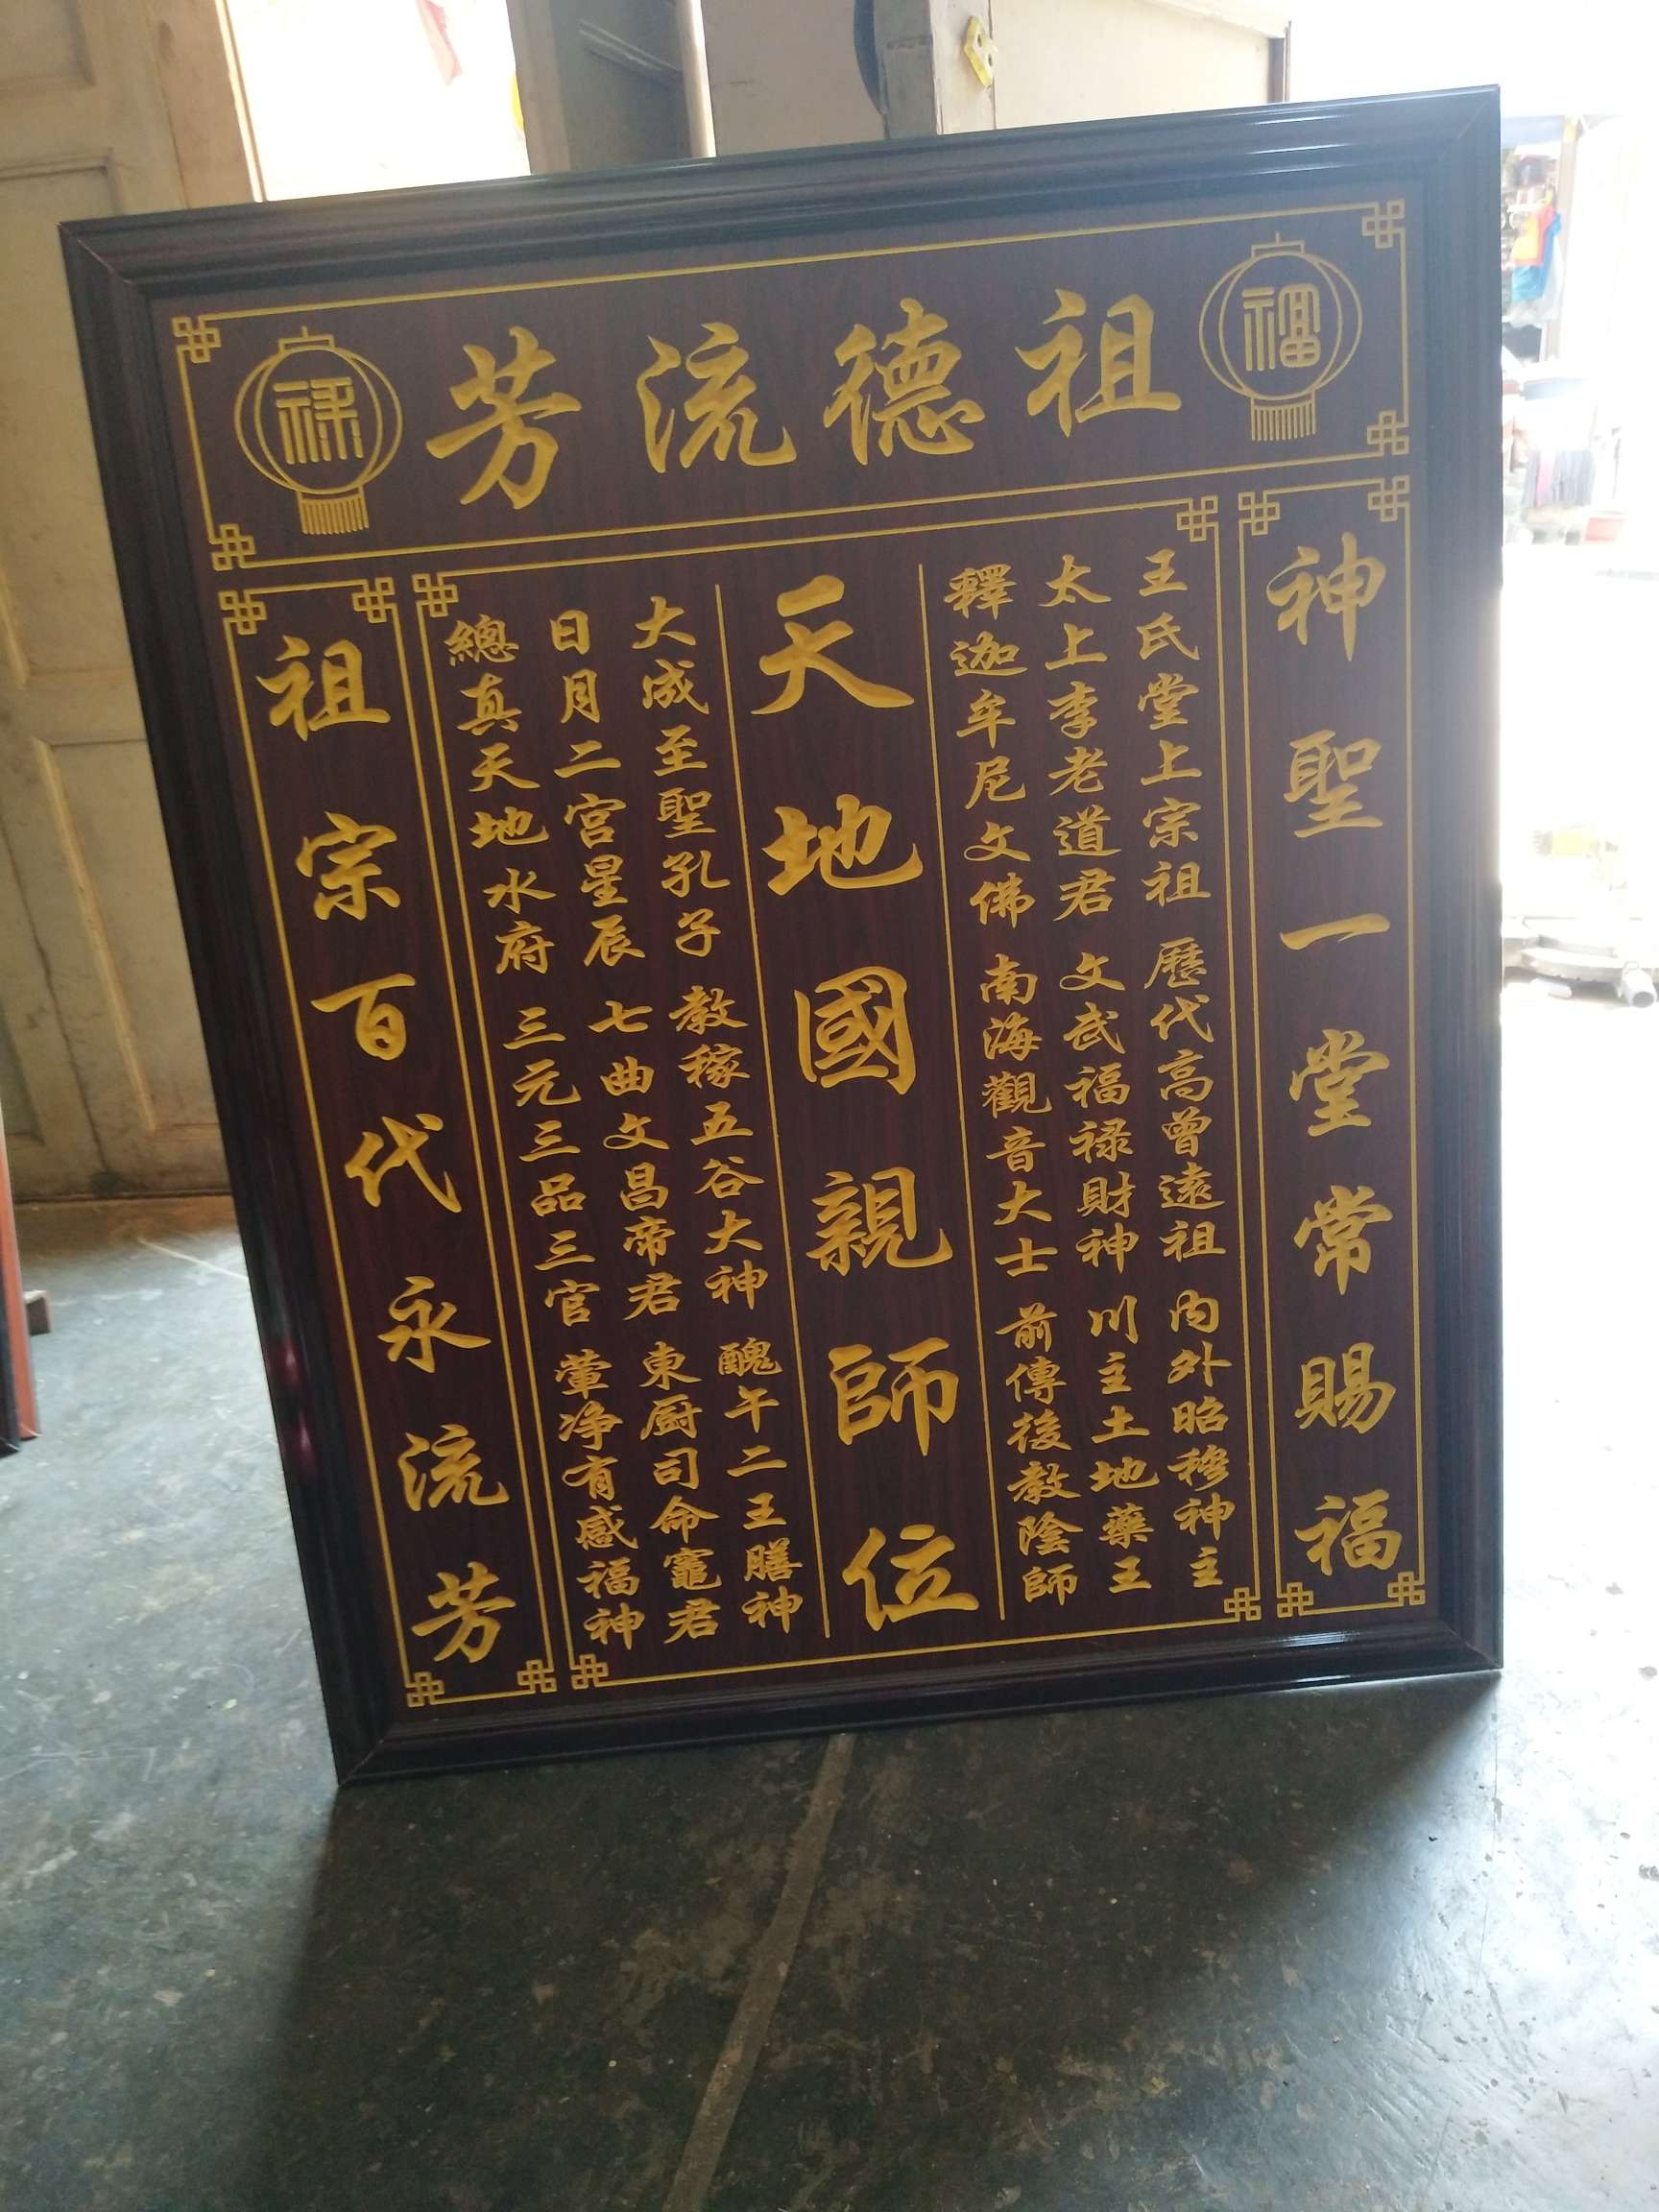 福
祖德流芳
禄
神聖一堂常賜福
王氏堂上宗祖 歷代高曾遠祖 内外昭穆神主
太上李老道君 文武福禄財神 川主土地藥王
釋迦牟尼文佛 南海觀音大士 前傳後教陰師
天地國親師位
大成至聖孔子 教稼五谷大神 醜午二王膳神
日月二宫星辰 七曲文昌帝君 東厨司命竈君
總真天地水府 三元三品三官 葷净有感福神
祖宗百代永流芳